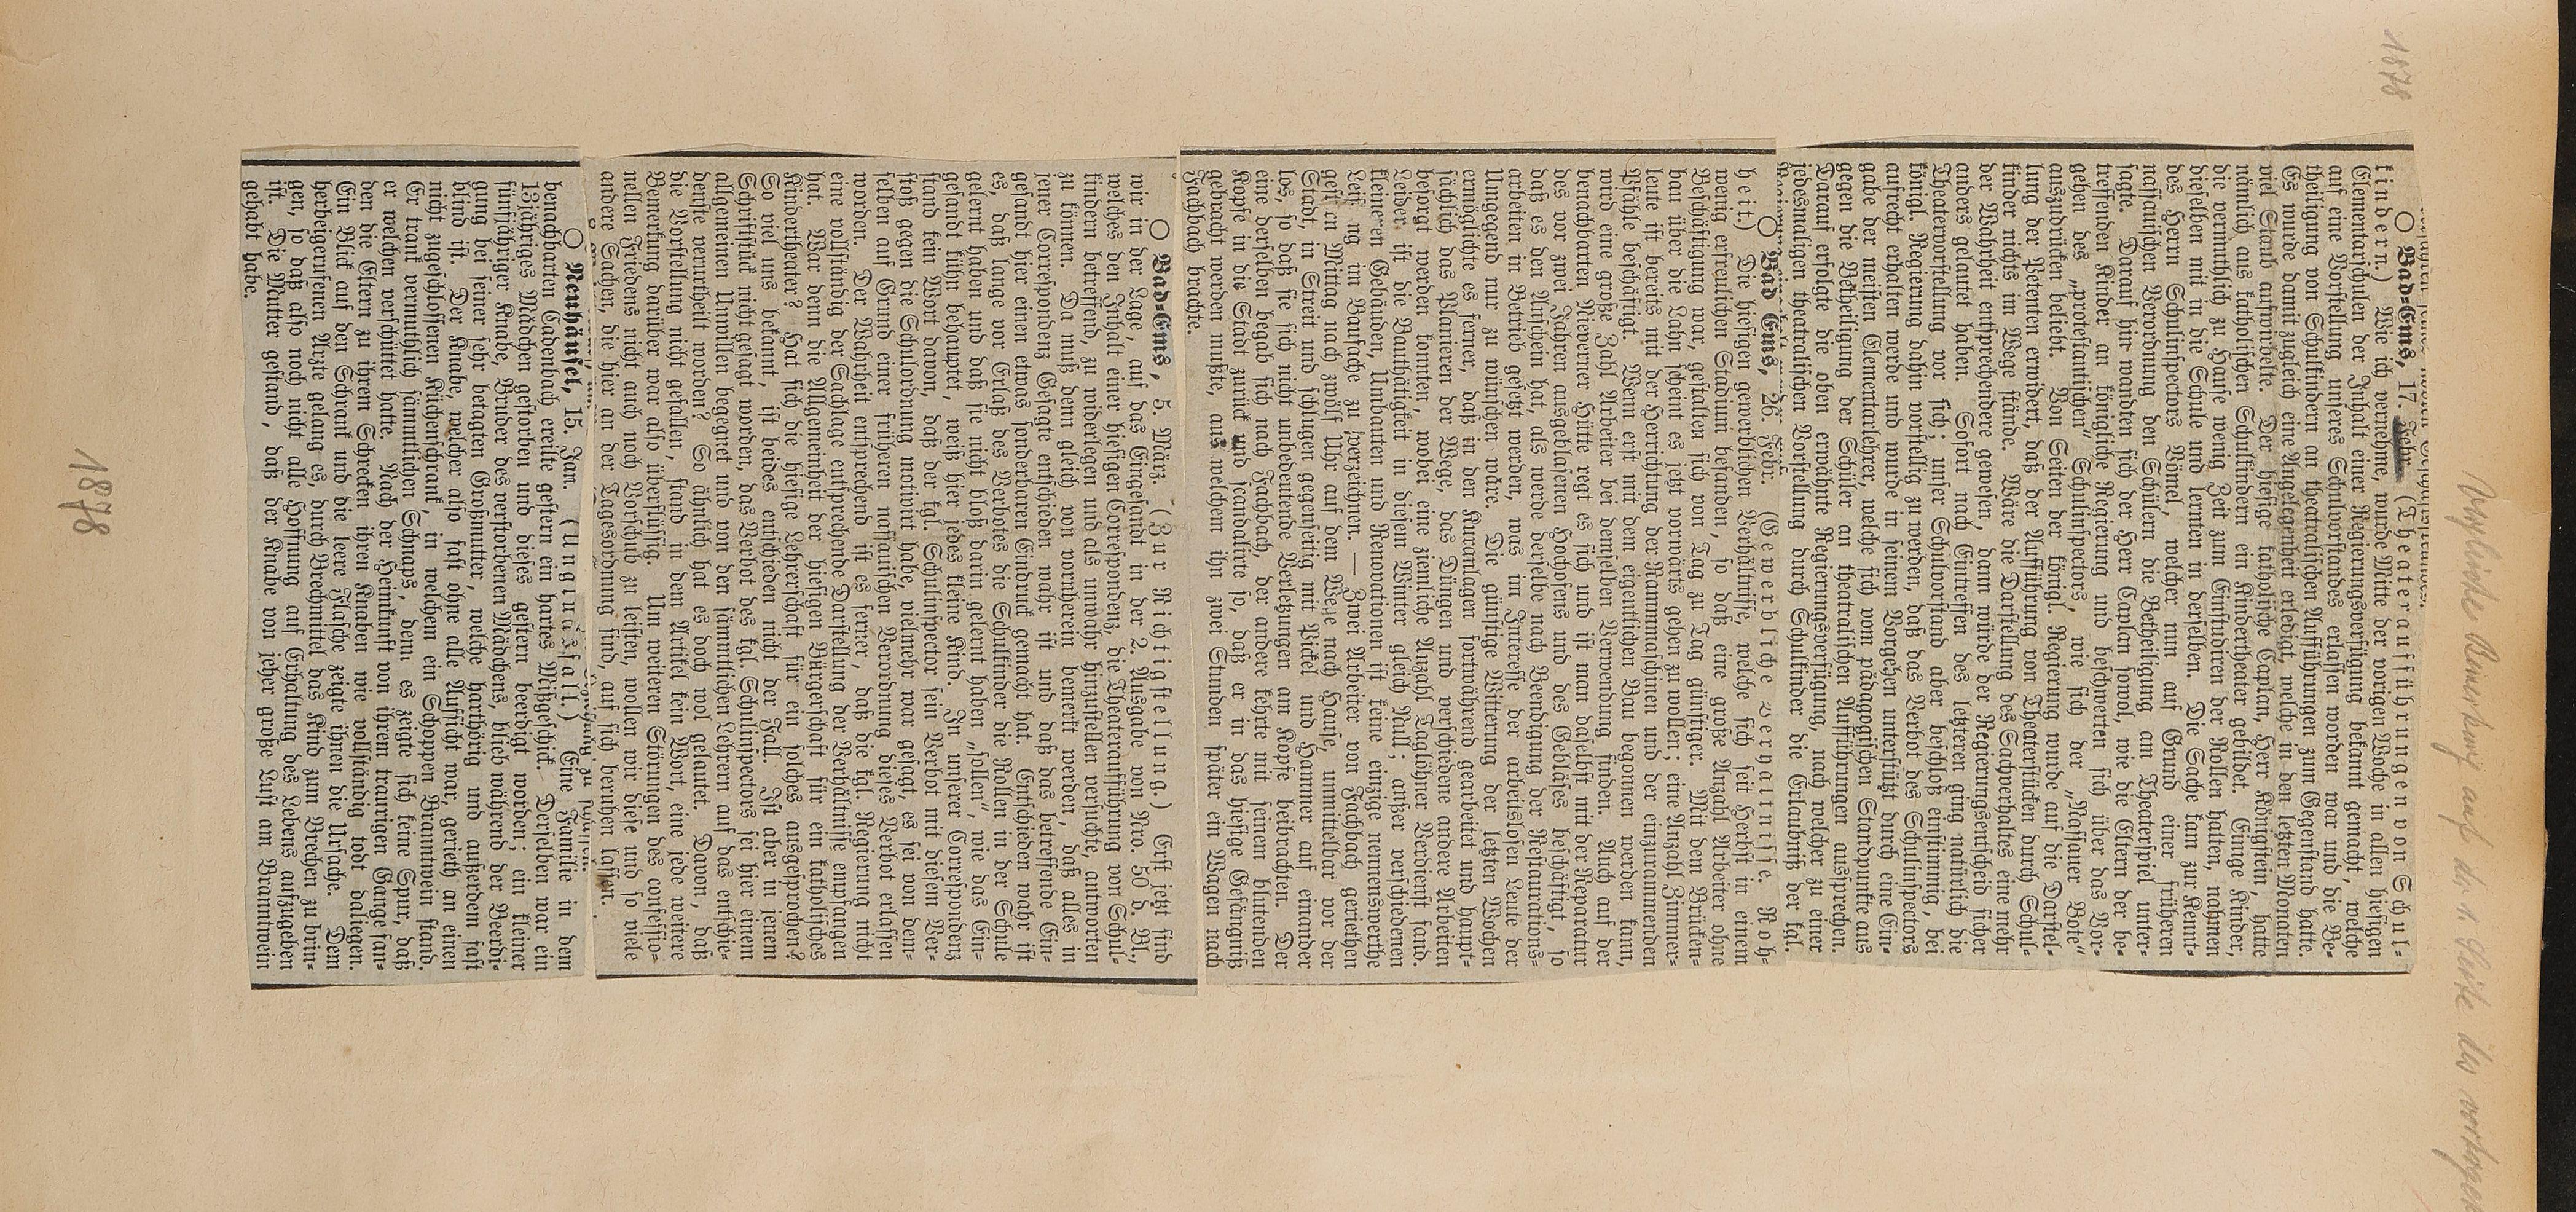 1878
○ Bad-Ems, 17. Febr. (Theateraufführungen von Schul-
kindern.) Wie ich vernehme, wurde Mitte der vorigen Woche in allen hiesigen
Elementarschulen der Inhalt einer Regierungsverfügung bekannt gemacht, welche
auf eine Vorstellung unseres Schulvorstandes erlassen worden war und die Be-
theiligung von Schulkindern an theatralischen Aufführungen zum Gegenstand hatte.
Es wurde damit zugleich eine Angelegenheit erledigt, welche in den letzten Monaten
viel Staub aufwirbelte. Der hiesige katholische Caplan, Herr Königstein, hatte
nämlich aus katholischen Schulkindern ein Kindertheater gebildet. Einige Kinder,
die vermuthlich zu Hause wenig Zeit zum Einstudiren der Rollen hatten, nahmen
dieselben mit in die Schule und lernten in derselben. Die Sache kam zur Kennt-
nis des Herrn Schulinspectors Römel, welcher nun auf Grund einer früheren
nassauischen Verordnung den Schülern die Betheiligung am Theaterspiel unter-
sagte. Darauf hin wandten sich der Herr Caplan sowol, wie die Eltern der be-
treffenden Kinder an königliche Regierung und beschwerten sich über das Vor-
gehen des „protestantischen“ Schulinspectors, wie sich der „Nassauer Bote“
auszudrücken beliebt. Von Seiten der königl. Regierung wurde auf die Darstel-
lung der Petenten erwidert, daß der Aufführung von Theaterstücken durch Schul-
kinder nichts im Wege stände. Wäre die Darstellung des Sachverhaltes eine mehr
der Wahrheit entsprechendere gewesen, dann würde der Regierungsentscheid sicher
anders gelautet haben. Sofort nach Eintreffen des letzteren ging natürlich die
Theatervorstellung vor sich; unser Schulvorstand aber beschloß einstimmig, bei
königl. Regierung dahin vorstellig zu werden, daß das Verbot des Schulinspectors
aufrecht erhalten werde und wurde in seinem Vorgehen unterstützt durch eine Ein-
gabe der meisten Elementarlehrer, welche sich vom pädagogischen Standpunkte aus
gegen die Betheiligung der Schüler an theatralischen Aufführungen aussprechen.
Darauf erfolgte die oben erwähnte Regierungsverfügung, nach welcher zu einer
jedesmaligen theatralischen Vorstellung durch Schulkinder die Erlaubniß der kgl.
○ Bad Ems, 26. Febr. (Gewerbliche Verhältnisse. Roh-
heit) Die hiesigen gewerblichen Verhältnisse, welche sich seit Herbst in einem
wenig erfreulichen Stadium befanden, so daß eine große Anzahl Arbeiter ohne
Beschäftigung war, gestalten sich von Tag zu Tag günstiger. Mit dem Brücken-
bau über die Lahn scheint es jetzt vorwärts gehen zu wollen; eine Anzahl Zimmer-
leute ist bereits mit der Herrichtung der Rammmaschinen und der einzurammenden
Pfähle beschäftigt. Wenn erst mit dem eigentlichen Bau begonnen werden kann,
wird eine große Zahl Arbeiter bei demselben Verwendung finden. Auch auf der
benachbarten Nieverner Hütte regt es sich und ist man daselbst mit der Reparatur
des vor zwei Jahren ausgeblasenen Hochofens und des Gebläses beschäftigt, so
daß es den Anschein hat, als werde derselbe nach Beendigung der Restaurations-
arbeiten in Betrieb gesetzt werden, was im Interesse der arbeitslosen Leute der
Umgegend nur zu wünschen wäre. Die günstige Witterung der letzten Wochen
ermöglichte es ferner, daß in den Kuranlagen fortwährend gearbeitet und haupt-
sächlich das Planieren der Wege, das Düngen und verschiedene andere Arbeiten
besorgt werden konnten, wobei eine ziemliche Anzahl Taglöhner Verdienst fand.
Leider ist die Bauthätigkeit in diesem Winter gleich Null; außer verschiedenen
kleineren Gebäuden, Umbauten und Renovationen ist keine einzige nennenswerthe
Leistung im Baufache zu verzeichnen. — Zwei Arbeiter von Fachbach geriethen
gestern Mittag nach zwölf Uhr auf dem Wege nach Hause, unmittelbar vor der
Stadt, in Streit und schlugen gegenseitig mit Pickel und Hammer auf einander
los, so daß sie sich nicht unbedeutende Verletzungen am Kopfe beibrachten. Der
eine derselben begab sich nach Fachbach, der andere kehrte mit seinem blutenden
Kopfe in die Stadt zurück und scandalirte so, daß er in das hiesige Gefängniß
gebracht werden mußte, aus welchem ihn zwei Stunden später ein Wagen nach
Fachbach brachte.
○ Bad-Ems, 5. März. (Zur Richtigstellung.) Erst jetzt sind
wir in der Lage, auf das Eingesandt in der 2. Ausgabe von Nro. 50 d. Bl.,
welches den Inhalt einer hiesigen Correspondenz, die Theateraufführung von Schul-
kindern betreffend, zu widerlegen und als unwahr hinzustellen versuchte, antworten
zu können. Da muß denn gleich von vornherein bemerkt werden, daß alles in
jener Correspondenz Gesagte entschieden wahr ist und daß das betreffende Ein-
gesandt hier einen etwas sonderbaren Eindruck gemacht hat. Entschieden wahr ist
es, daß lange vor Erlaß des Verbotes die Schulkinder die Rollen in der Schule
gelernt haben und daß sie nicht bloß darin gelernt haben „sollen“, wie das Ein-
gesandt kühn behauptet, weiß hier jedes kleine Kind. In unserer Correspondenz
stand kein Wort davon, daß der kgl. Schulinspector sein Verbot mit diesem Ver-
stoß gegen die Schulordnung motivirt habe, vielmehr war gesagt, es sei von dem-
selben auf Grund einer früheren nassauischen Verordnung dieses Verbot erlassen
worden. Der Wahrheit entsprechend ist es ferner, daß die kgl. Regierung nicht
eine vollständig der Sachlage entsprechende Darstellung der Verhältnisse empfangen
hat. War denn die Allgemeinheit der hiesigen Bürgerschaft für ein katholisches
Kindertheater? Hat sich die hiesige Lehrerschaft für ein solches ausgesprochen?
So viel uns bekannt, ist beides entschieden nicht der Fall. Ist aber in jenem
Schriftstück nicht gesagt worden, das Verbot des kgl. Schulinspectors sei hier einem
allgemeinen Unwillen begegnet und von den sämmtlichen Lehrern auf das entschie-
denste verurtheilt worden? So ähnlich hat es doch wol gelautet. Davon, daß
die Vorstellung nicht gefallen, stand in dem Artikel kein Wort, eine jede weitere
Bemerkung darüber war also überflüssig. Um weiteren Störungen des confessio-
nellen Friedens nicht auch noch Vorschub zu leisten, wollen wir diese und so viele
andere Sachen, die hier an der Tagesordnung sind, auf sich beruhen lassen.
○ Neuhäusel, 15. Jan. (Unglücksfall.) Eine Familie in dem
benachbarten Cadenbach ereilte gestern ein hartes Mißgeschick. Derselben war ein
13jähriges Mädchen gestorben und dieses gestern beerdigt worden; ein kleiner
fünfjähriger Knabe, Bruder des verstorbenen Mädchens, blieb während der Beerdi-
gung bei seiner sehr betagten Großmutter, welche harthörig und außerdem fast
blind ist. Der Knabe, welcher also fast ohne alle Aufsicht war, gerieth an einen
nicht zugeschlossenen Küchenschrank, in welchem ein Schoppen Branntwein stand.
Er trank vermuthlich sämmtlichen Schnaps, denn es zeigte sich keine Spur, daß
er welchen verschüttet hatte. Nach der Heimkunft von ihrem traurigen Gange fan-
den die Eltern zu ihrem Schrecken ihren Knaben wie vollständig todt daliegen.
Ein Blick auf den Schrank und die leere Flasche zeigte ihnen die Ursache. Dem
herbeigerufenen Arzte gelang es, durch Brechmittel das Kind zum Brechen zu brin-
gen, so daß also noch nicht alle Hoffnung auf Erhaltung des Lebens aufzugeben
ist. Die Mutter gestand, daß der Knabe von jeher große Lust am Branntwein
gehabt habe.
1878